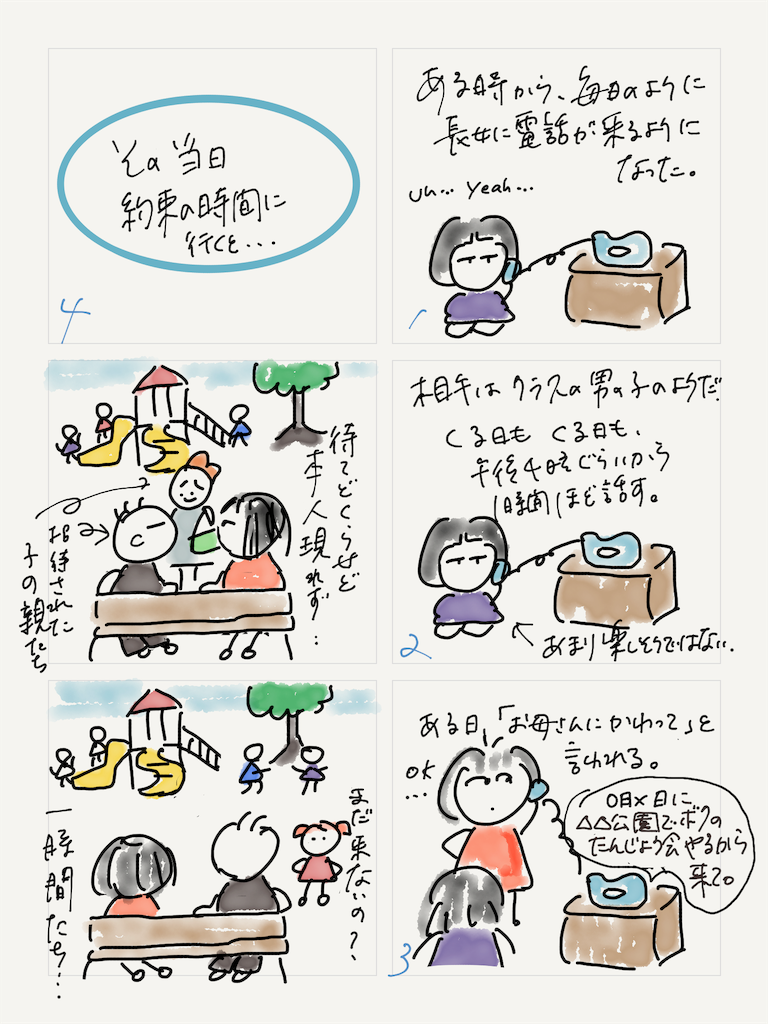 ある時から、毎日のように
長女に電話が来るように
なった。
uh... yeah...
1
相手はクラスの男の子のようだ
くる日も くる日も、
午後4時ぐらいから
1時間ほど話す。
あまり楽しそうではない.
2
ある日、「お母さんにかわって」と
言われる。
OK
...
○月×日に
△△公園でボクの
たんじょう会やるから
来て。
3
その当日
約束の時間に
行くと...
4
待てどくらせど
本人現れず...
招待された
子の親たち
まだ来ないの?、
一時間たち...